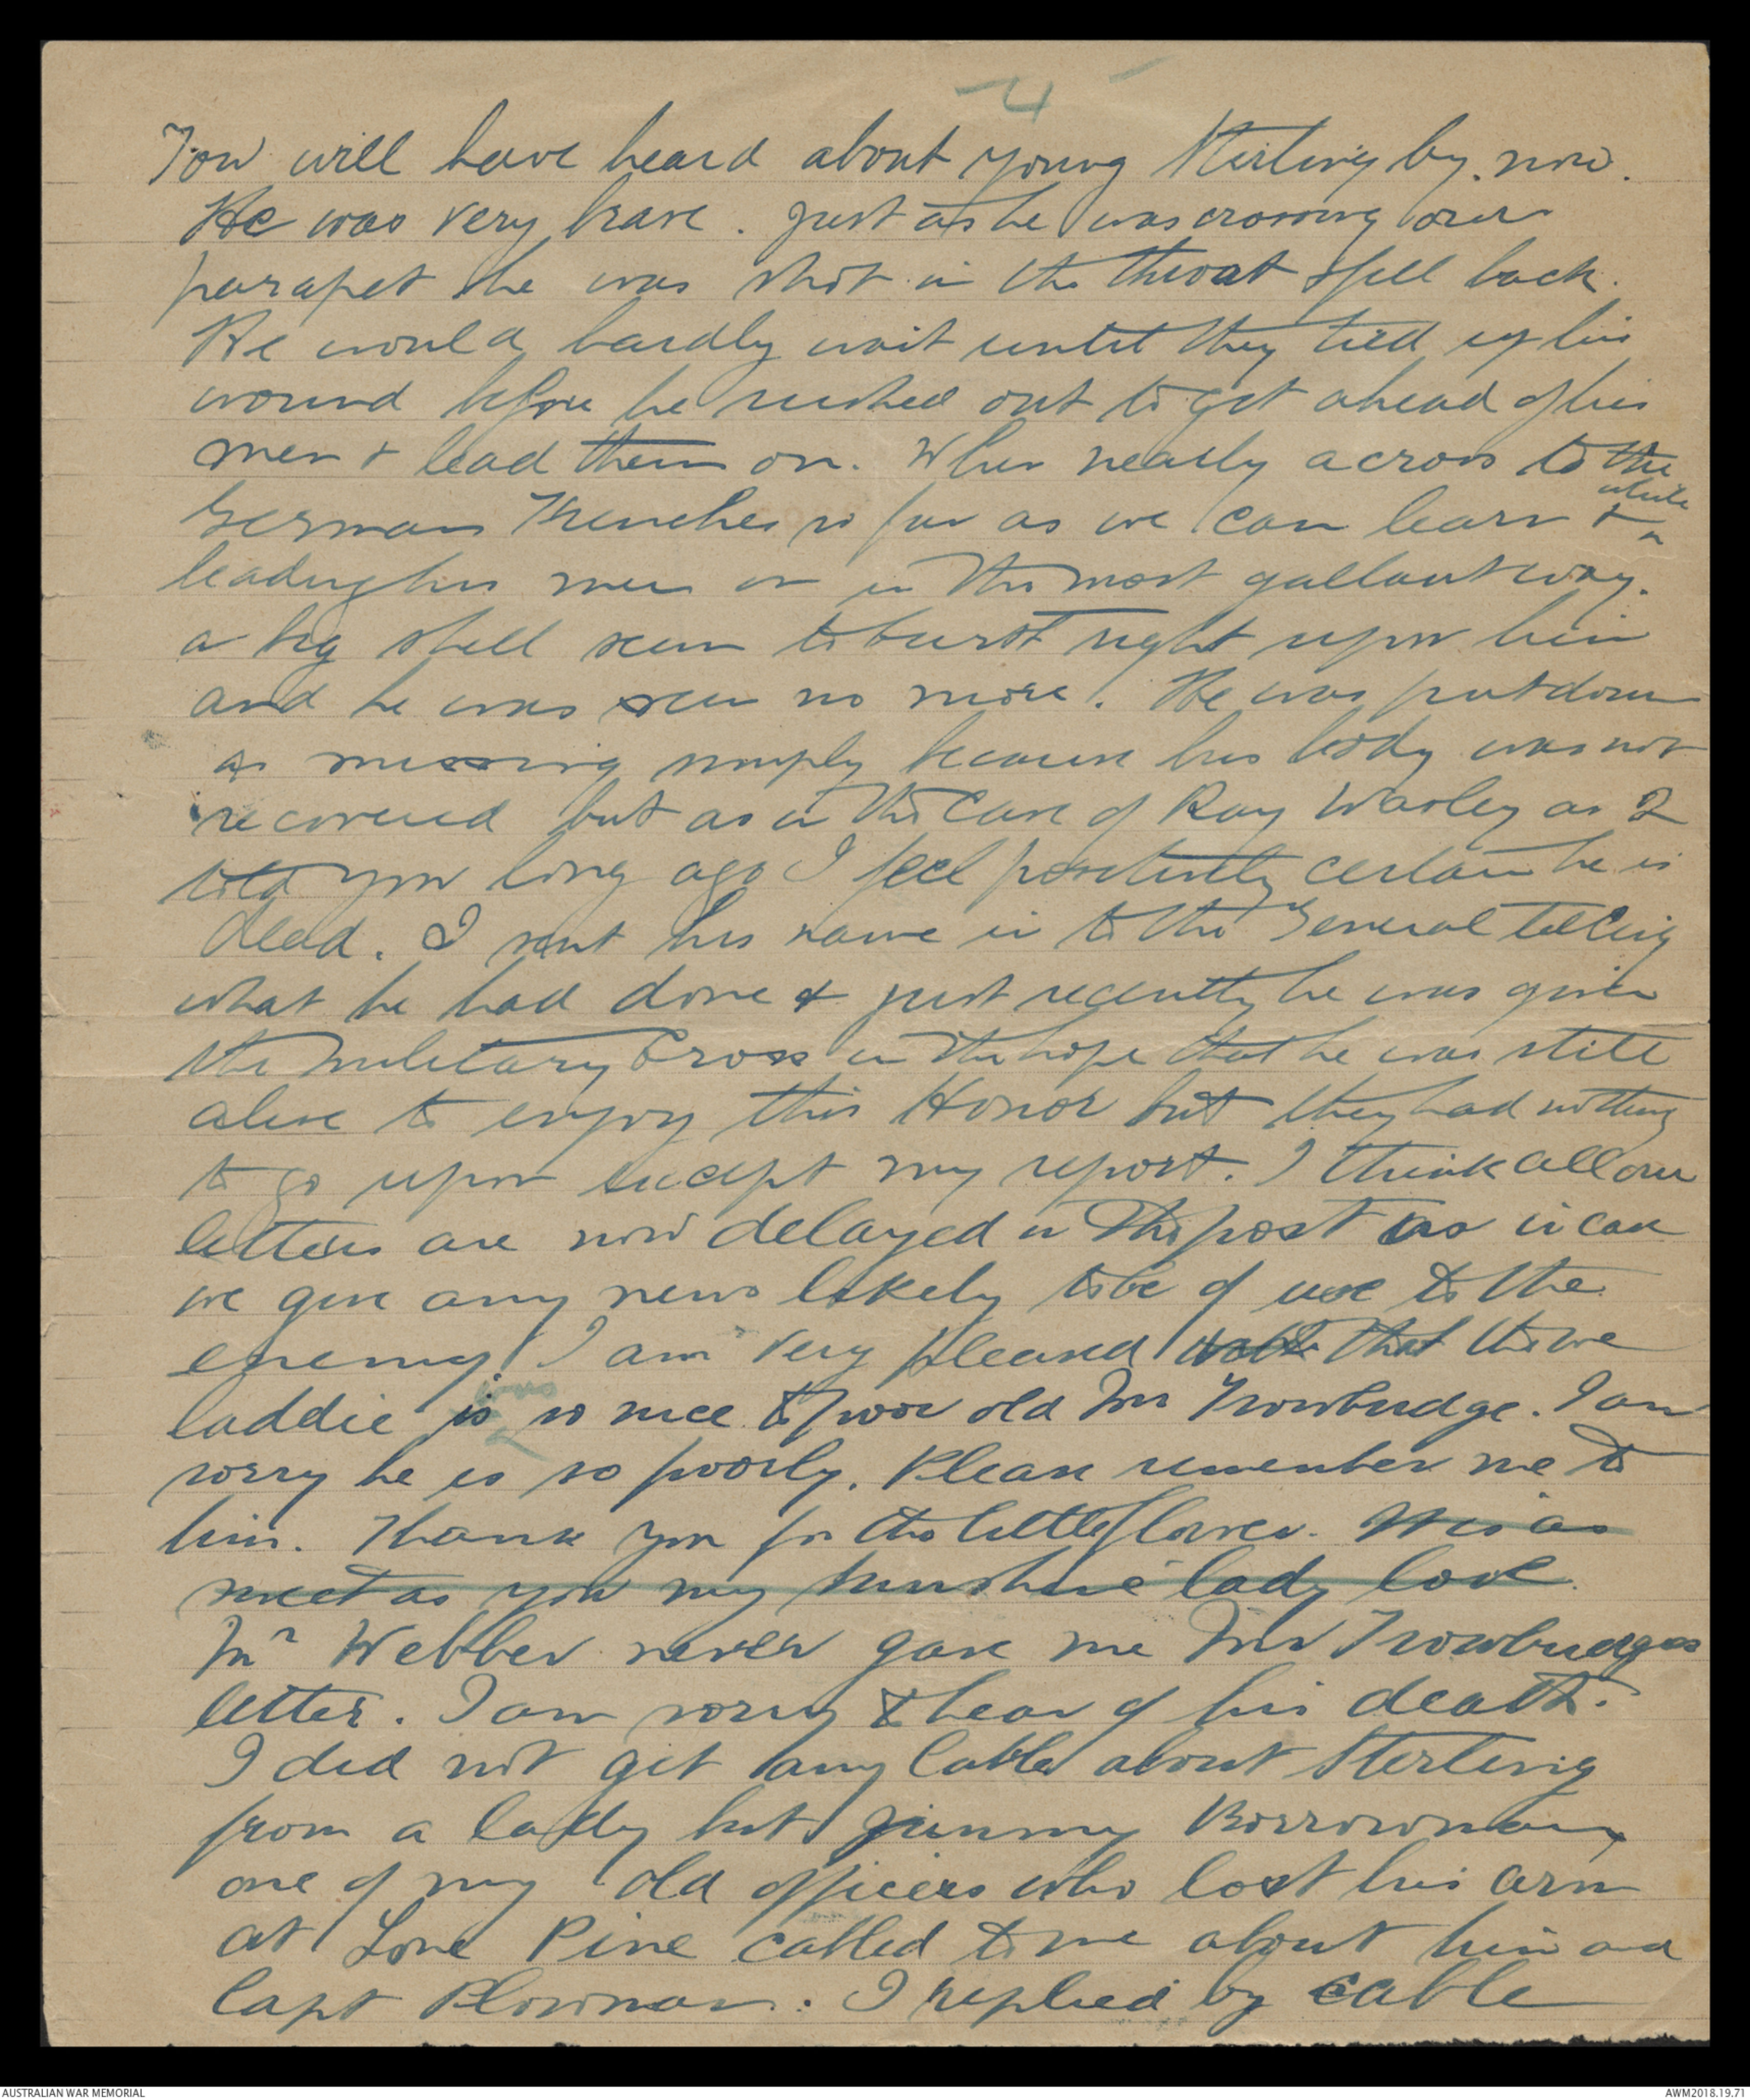 - 4 -
You will have heard about young Sterling by now.
He was very brave. Just as he was crossing over
parapet he was shot in the throat & fell back.
He would hardly wait until they tied up his
wound before he rushed out to get ahead of his
men & lead them on. When nearly across to the
German Trenches so far as we can learn & while
leading his men on in the most gallant way.
a big shell seem to burst right upon him
and he was seen no more. He was put down
as missing simply because his body was not
recovered but as in the case of Ray Warley as I
told you long ago I feel positively certain he is
dead. I sent his name in to the General telling
what he had done & just recently he was given
the Military Cross in the hope that he was still
alive to enjoy this Honor but they had nothing
to go upon except my report. I think all our
letters are now delayed in the post as in case
we give any news likely to be of use to the
enemy. I am very pleased that the wee
laddie is was so nice to poor old Mr Trowbridge. I am
sorry he is so poorly. Please remember me to
him. Thank you for the little flower. It is as
sweet as you my sunshine lady love.
Mr Webber never gave me Mr Trowbridges
letter. I am sorry to hear of his death.
I did not get any Cable about Sterling
from a lady but Jimmy Borrowman
one of my old officers who lost his arm
at Lone Pine cabled to me about him and
Capt Plowman. I replied by cable
AUSTRALIAN WAR MEMORIAL
AWM2018.19.71